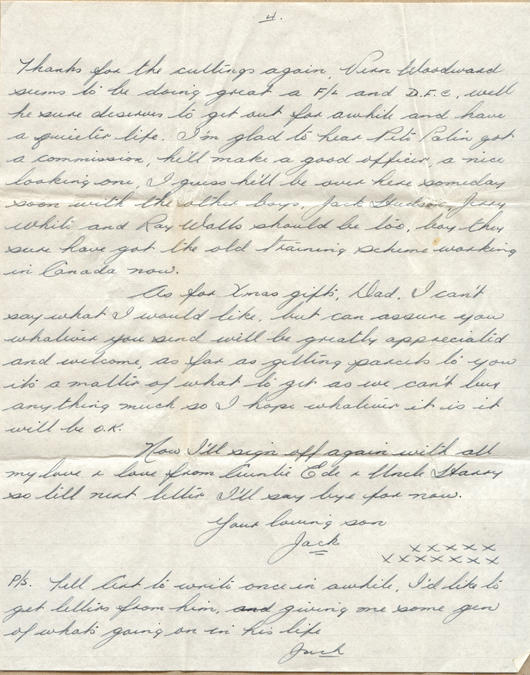 4.
Thanks for the cuttings again, Vern Woodward
seems to be doing great a F/L and D.F.C. well
he sure deserves to get out for awhile and have
a quieter life. I'm glad to hear Pete got
a commission, he'll make a good officer, a nice
looking one, I guess he'll be over here someday
soon with the other boys, Jack Hudson, Jerry
White and Ray Walls should be too, boy they
sure have got the old training scheme working
in Canada now.
As for Xmas gifts, Dad, I can't
say what I would like, but can assure you
whatever you send will be greatly appreciated
and welcome, as far as getting parcels to you
its a matter of what to get as we can't buy
anything much so I hope whatever it is it
will be O.K.
Now I'll sign off again with all
my love & love from Auntie Ede & Uncle Harry
so till next letter I'll say bye for now.
Your loving son
Jack
xxxxx
xxxxxxx
P/S. Tell Art to write once in awhile, I'd like to
get letters from him, and giving me some gen
of what's going on in his life
Jack